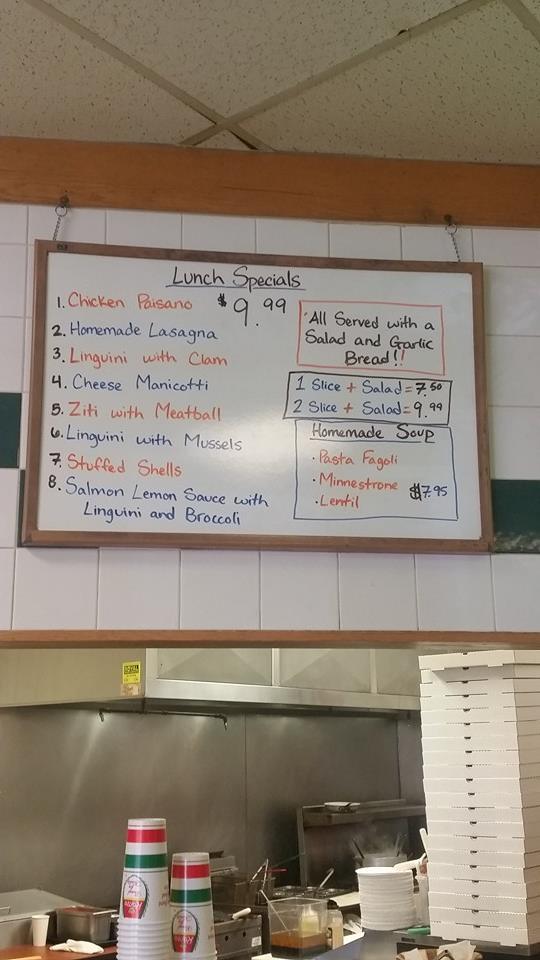 Lunch Specials
1. Chicken Paisano $9.99
2. Homemade Lasagna
3. Linguini with Clam
4. Cheese Manicotti
5. Ziti with Meatball
6. Linguini with Mussels
7. Stuffed Shells
8. Salmon Lemon Sauce with
Linguini and Broccoli
All Served with a
Salad and Garlic
Bread!!
1 Slice + Salad = 7.50
2 Slice + Salad = 9.99
Homemade Soup
· Pasta Fagoli
· Minnestrone $7.95
· Lentil